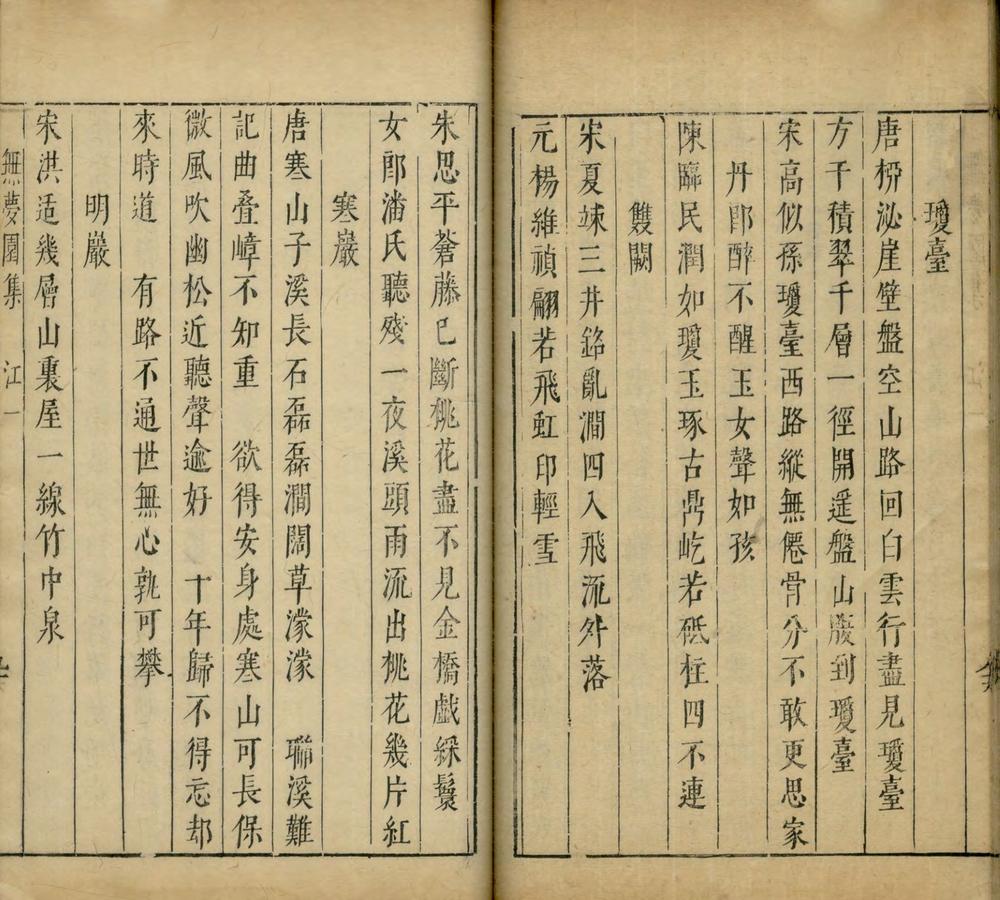 瓊臺
唐桞泌崖壁盤空山路回白雲行盡見瓊臺
方干積翠千層一徑開遥盤山腹到瓊臺
宋高似孫瓊臺西路縱無僊骨分不敢更思家
丹郎醉不醒玉女聲如孩
陳臨民潤如瓊玉琢古鼎屹若砥柱四不連
雙闕
宋夏竦三井銘亂澗四入飛流外落
元楊維禎翩若飛虹印輕雪
朱思平蒼藤已斷桃花盡不見金橋戲綵鬟
女郎潘氏聽殘一夜溪頭雨流出桃花幾片紅
寒巖
唐寒山子溪長石磊磊澗闊草濛濛 聯溪難
記曲叠嶂不知重 欲得安身處寒山可長保
微風吹幽松近聽聲逾好 十年歸不得忘却
來時道 有路不通世無心孰可攀
明巖
宋洪适幾層山裏屋一線竹中泉
無夢園集 江一